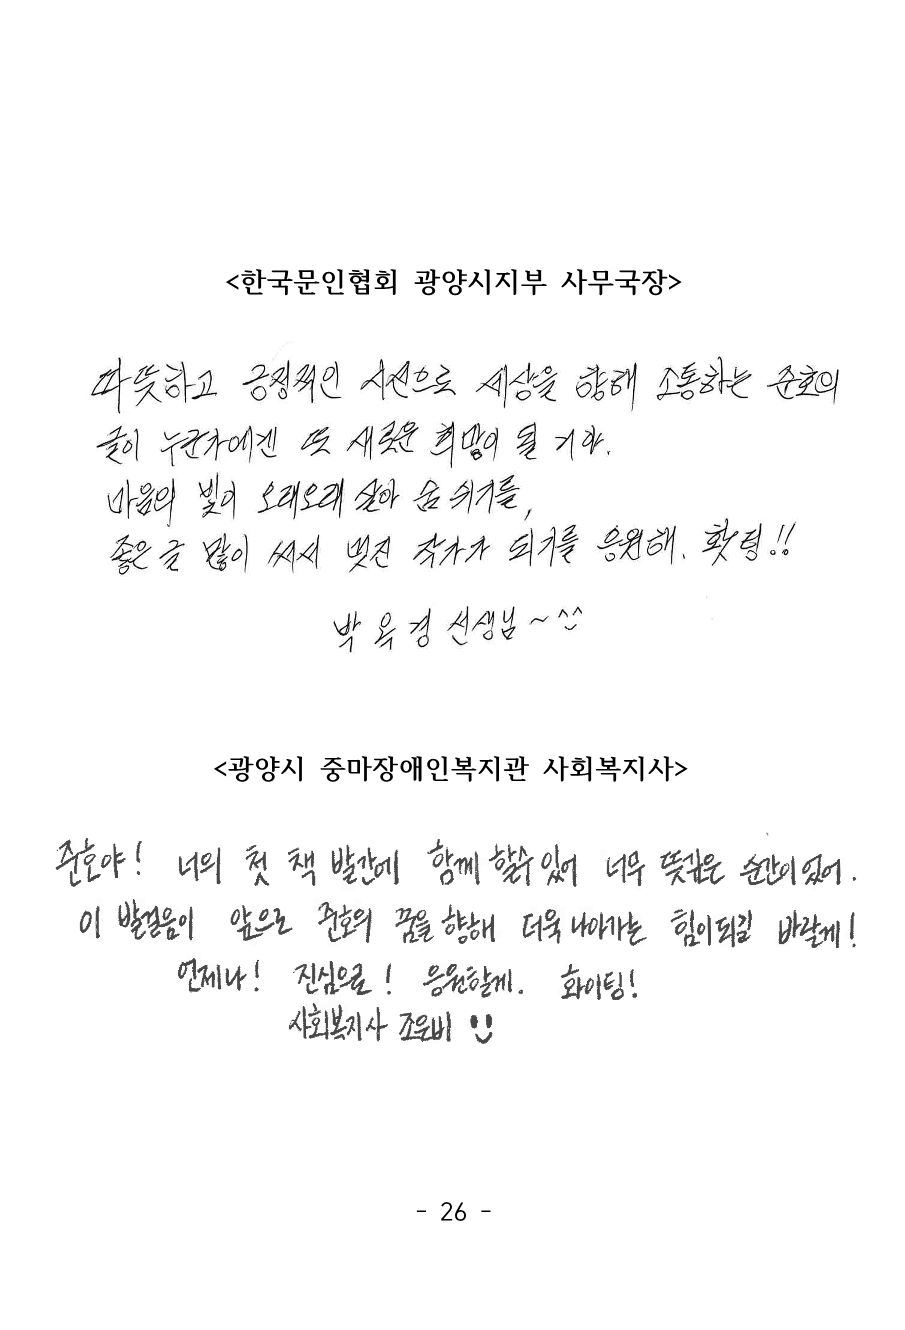 <한국문인협회 광양시지부 사무국장>
따뜻하고 긍정적인 시선으로 세상을 향해 소통하는 준호의
글이 누군가에겐 또 새로운 희망이 될 거야.
마음의 빛이 오래오래 살아 숨 쉬기를,
좋은 글 많이 써서 멋진 작가가 되기를 응원해. 홧팅!!
박옥경 선생님~^^
<광양시 중마장애인복지관 사회복지사>
준호야! 너의 첫 책 발간에 함께 할수있어 너무 뜻깊은 순간이었어.
이 발걸음이 앞으로 준호의 꿈을 향해 더욱 나아가는 힘이되길 바랄게!
언제나! 진심으로! 응원할게. 화이팅!
사회복지사 조우비
- 26 -